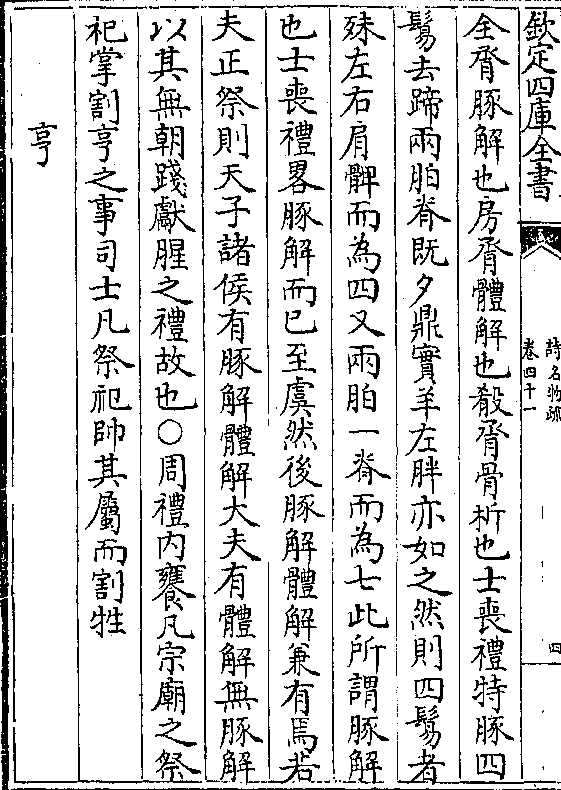 欽定四庫全書
詩名物疏
卷四十一
四
全胥豚解也房胥體解也殽胥骨折也士喪禮特豚四
鬄去蹄兩胉脊既夕鼎實羊左胖亦如之然則四鬄者
殊左右肩髀而為四又兩胉一脊而為七此所謂豚解
也士喪禮畧豚解而已至虞然後豚解體解兼有焉若
夫正祭則天子諸侯有豚解體解大夫有體解無豚解
以其無朝踐獻腥之禮故也○周禮內饔凡宗廟之祭
祀掌割亨之事司士凡祭祀帥其屬而割牲
亨